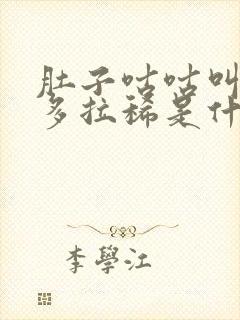 肚子咕咕叫
多拉稀是什
李學江